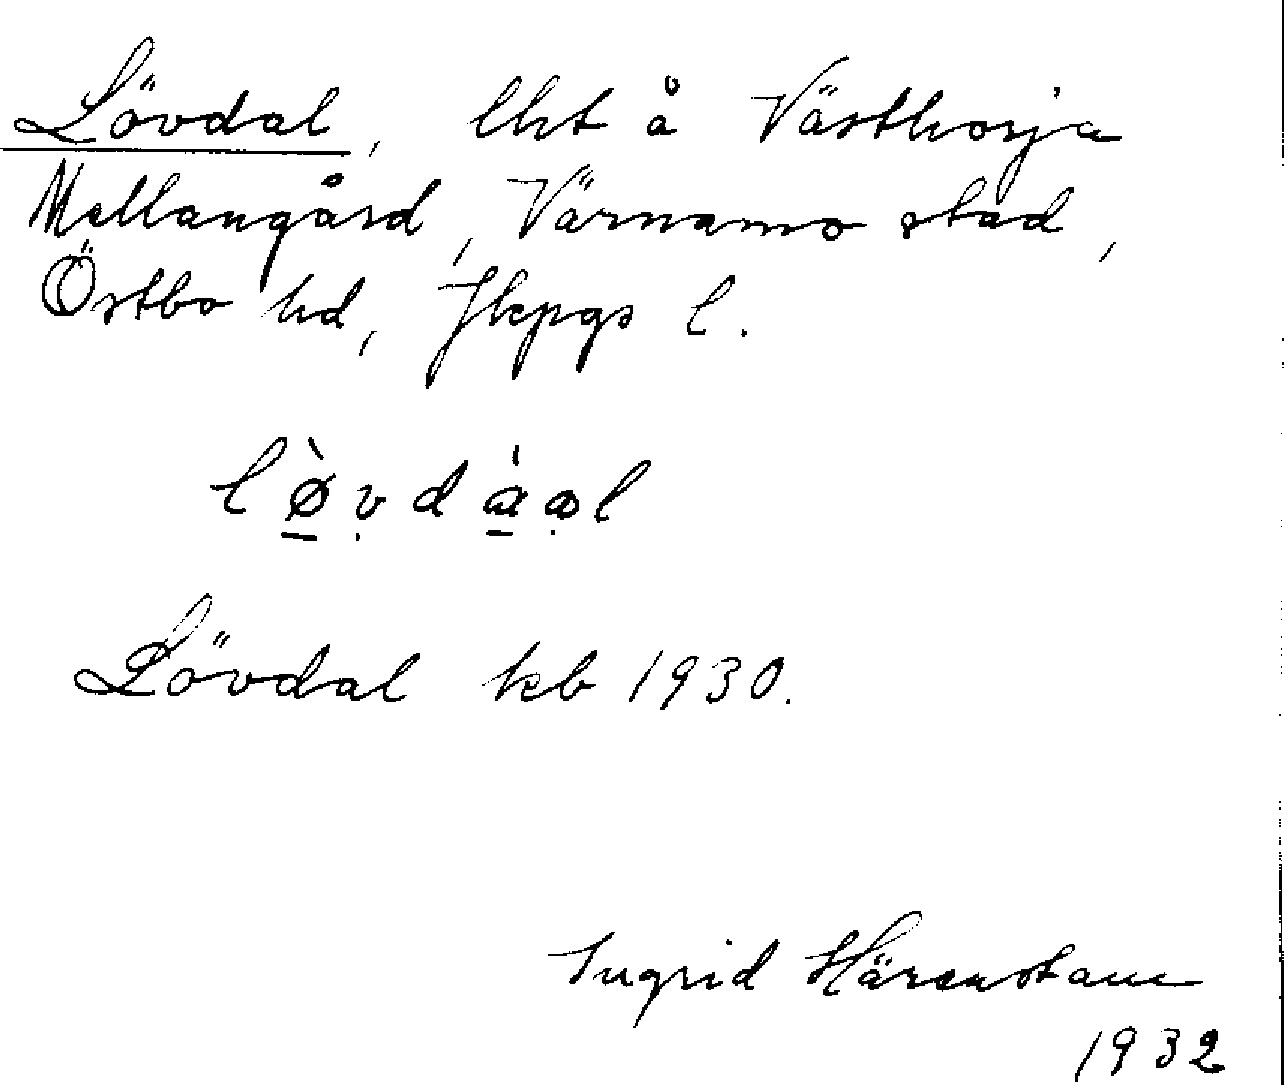 Lövdal, lht å Västhorja
Mellangård, Värnamo stad,
Östbo hd, Jkpgs l.
Lövdal kb 1930.
Ingrid Härenstam
1932